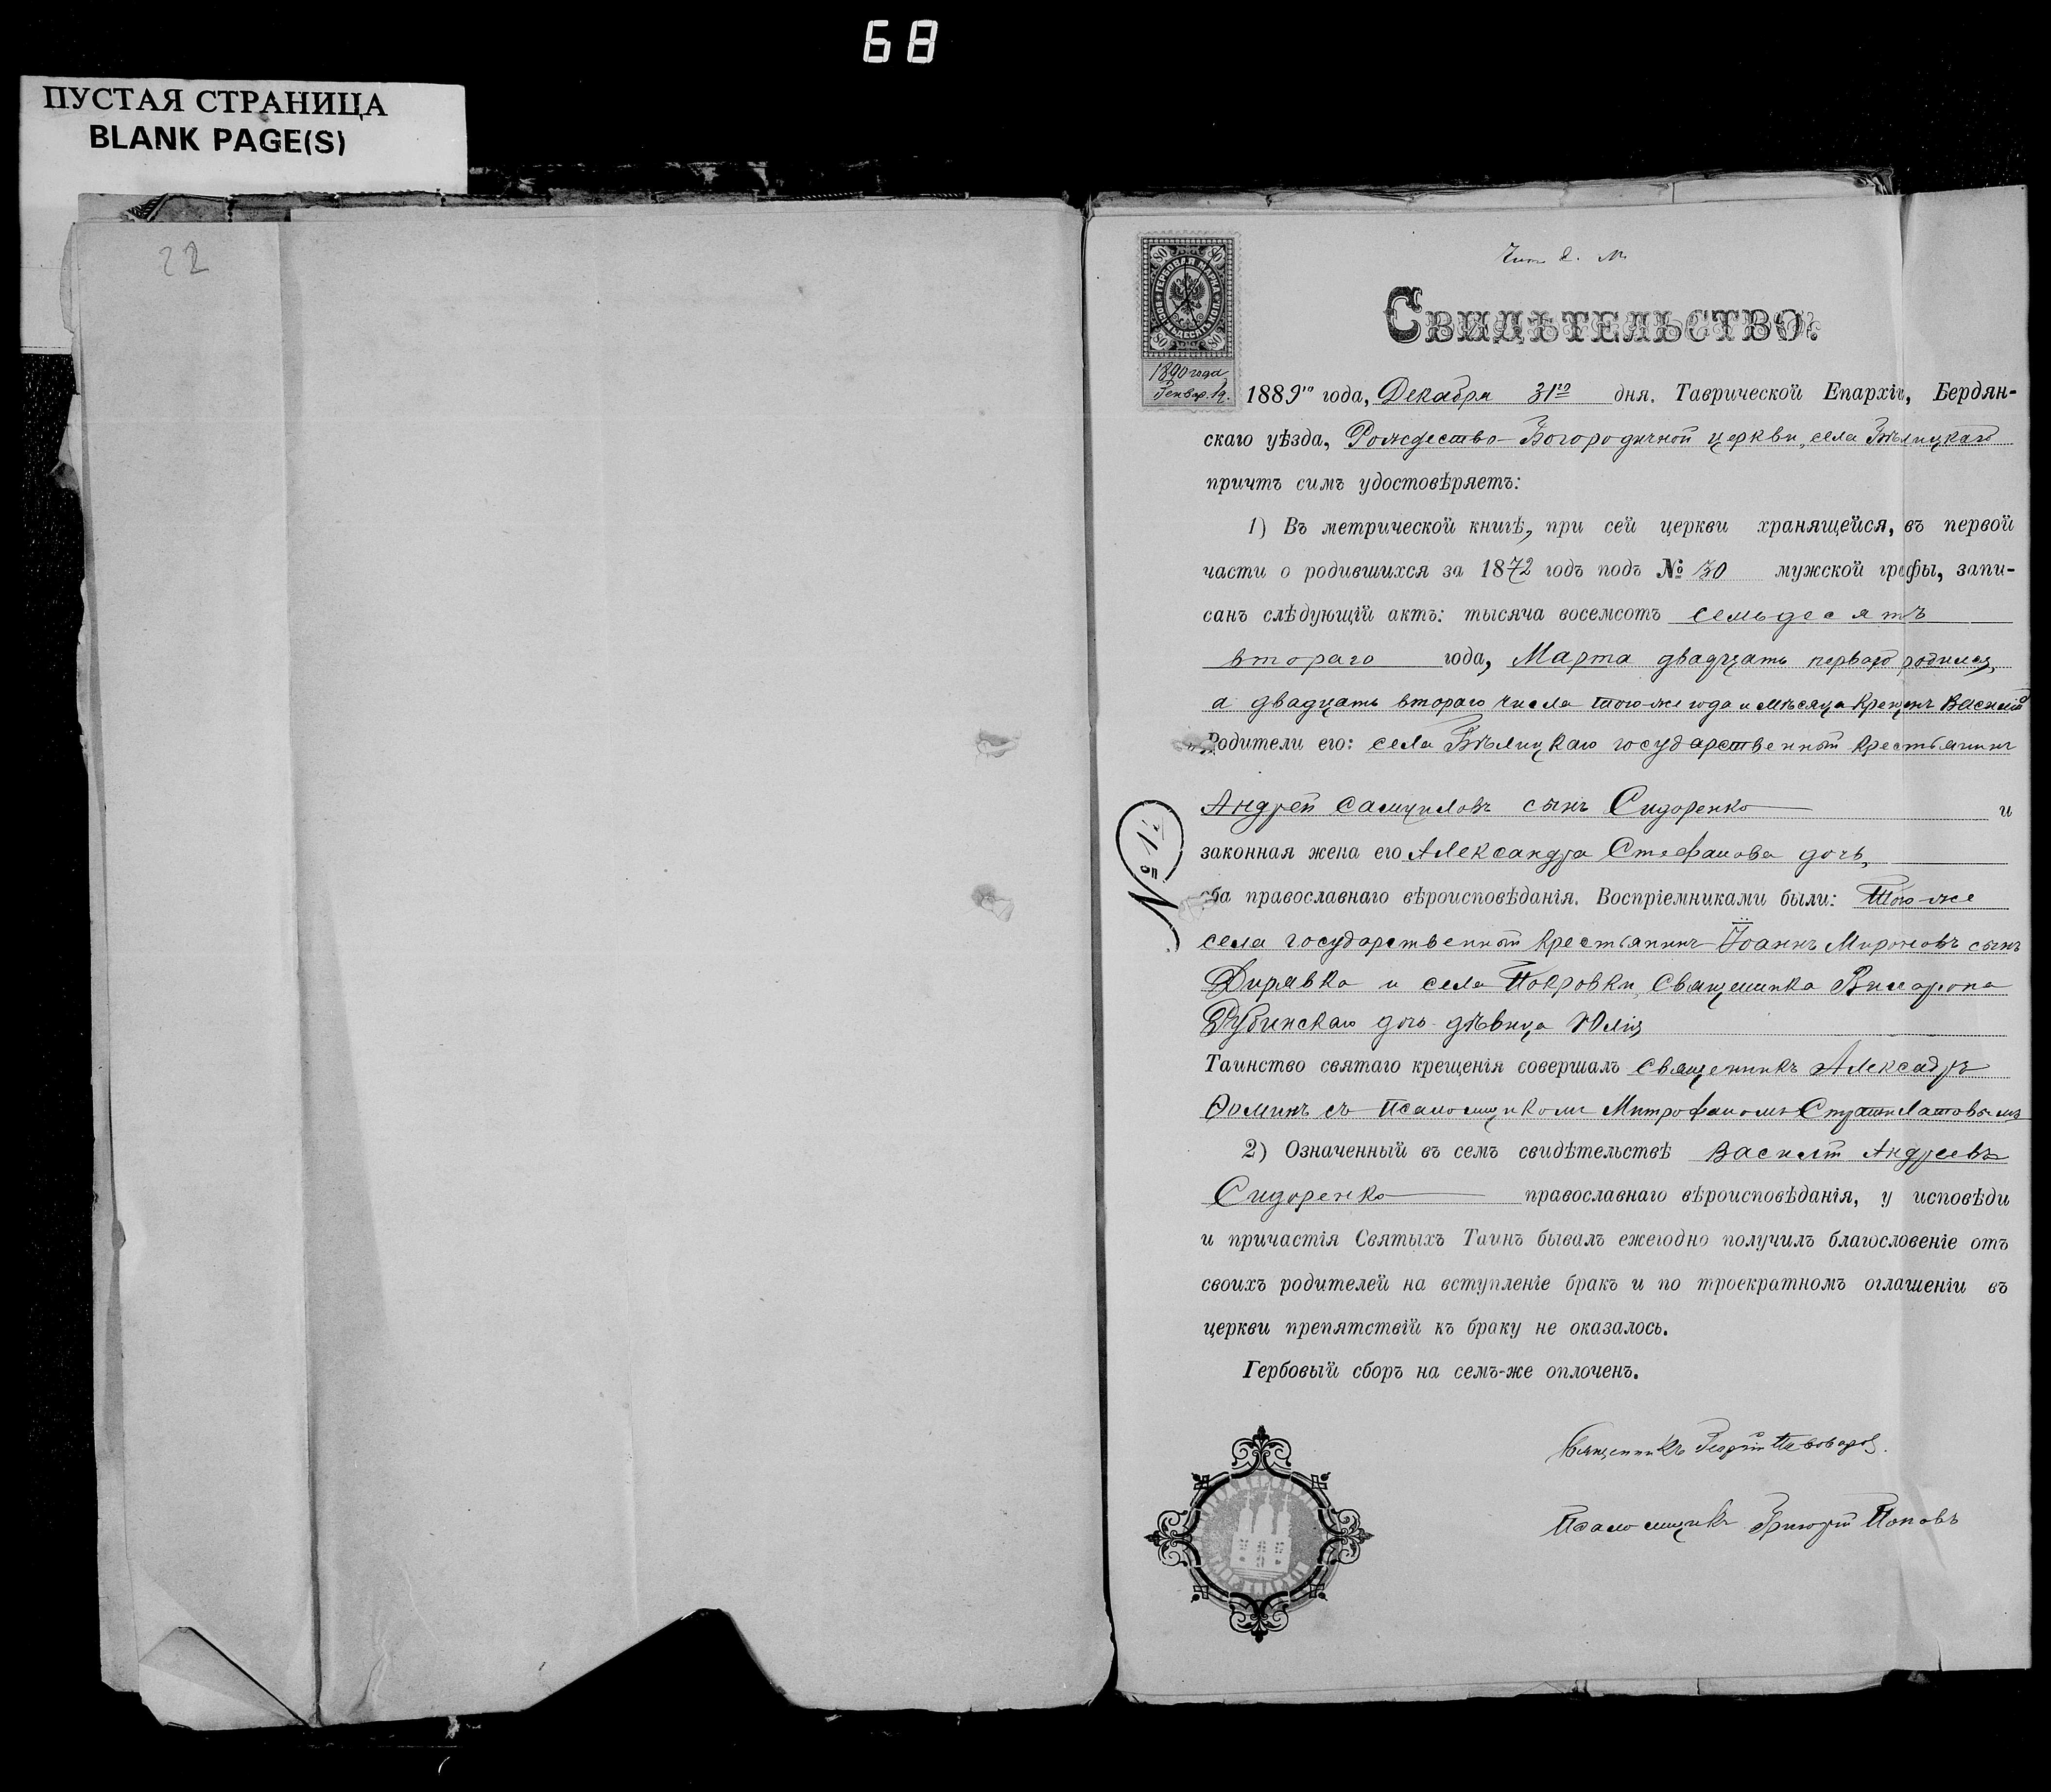 68
ПУСТАЯ СТРАНИЦА
BLANK PAGE(S)
22
80 80
ГЕРБОВАЯ МАРКА
ВОСЕМЬДЕСЯТЪ КОП.
80 80
1890 года
Генвар. 19.
СВИДѢТЕЛЬСТВО.
1889го года, Декабря 31го дня. Таврической Епархіи, Бердян-
скаго уѣзда, Рождество-Богородичной церкви, села Бѣлицкаго
причтъ симъ удостовѣряетъ:
1) Въ метрической книгѣ, при сей церкви хранящейся, въ первой
части о родившихся за 1872 годъ подъ № 30 мужской графы, запи-
санъ слѣдующій актъ: тысяча восемсотъ семьдесятъ
втораго года, Марта двадцать перваго родился,
а двадцать втораго числа того-же года и мѣсяца крещенъ Василій
Родители его: села Бѣлицкаго государственный крестьянинъ
Андрей Самуиловъ сынъ Сидоренко и
законная жена его Александра Стефанова дочь,
оба православнаго вѣроисповѣданія. Воспріемниками были: Того-же
села государственный крестьянинъ Іоаннъ Мироновъ сынъ
Дирявка и села Покровки, Священника Виссаріона
Рубинскаго дочь дѣвица Юлія
Таинство святаго крещенія совершалъ Священникъ Александръ
Ѳоминъ съ псаломщикомъ Митрофаномъ Стратилатовымъ
2) Означенный въ семъ свидѣтельствѣ Василій Андреевъ
Сидоренко православнаго вѣроисповѣданія, у исповѣди
и причастія Святыхъ Таинъ бывалъ ежегодно получилъ благословеніе отъ
своихъ родителей на вступленіе бракъ и по троекратномъ оглашеніи въ
церкви препятствій къ браку не оказалось.
Гербовый сборъ на семъ-же оплоченъ.
№ 12
Священникъ Георгій Пивоваров
Псаломщикъ Григорій Поповъ